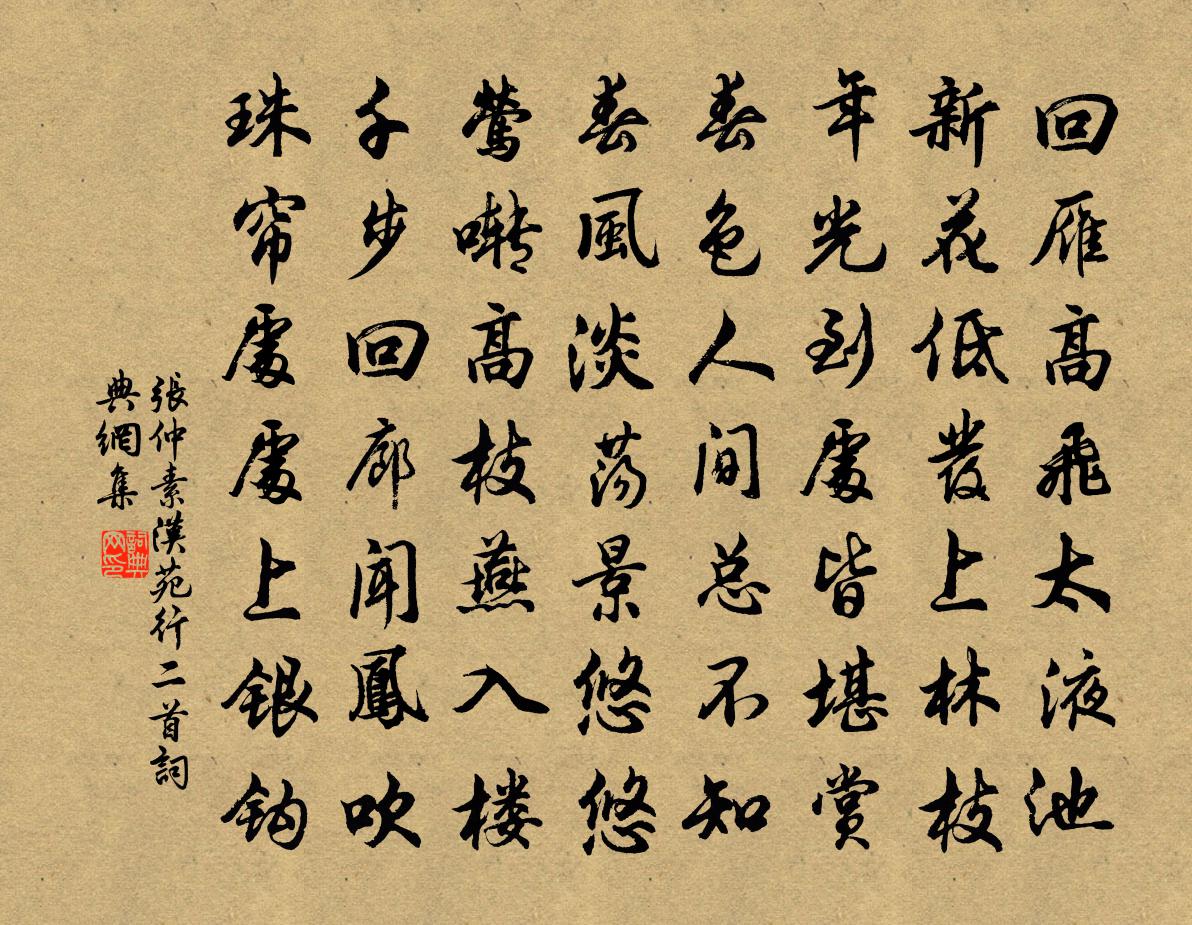 回雁高飛太液池
新花低發上林枝
年光到處皆堪賞
春色人间总不知
春風淡荡景悠悠
鶯囀高枝燕入楼
千步回廊闻鳳吹
珠帘處處上银钩
張仲素漢苑行二首詞
典網集
詞典網印